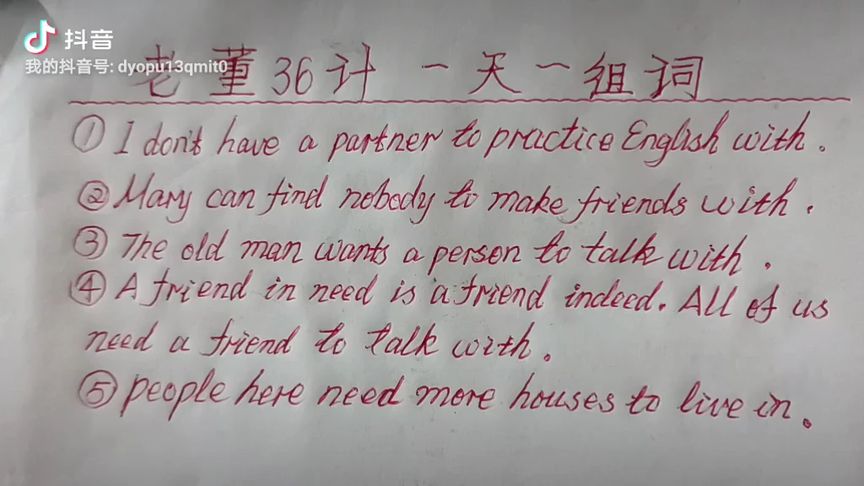 抖音
我的抖音号: dyopu13qmit0
老董36计 一天一组词
① I don't have a partner to practice English with.
② Mary can find nobody to make friends with.
③ The old man wants a person to talk with.
④ A friend in need is a friend indeed. All of us
need a friend to talk with.
⑤ people here need more houses to live in.